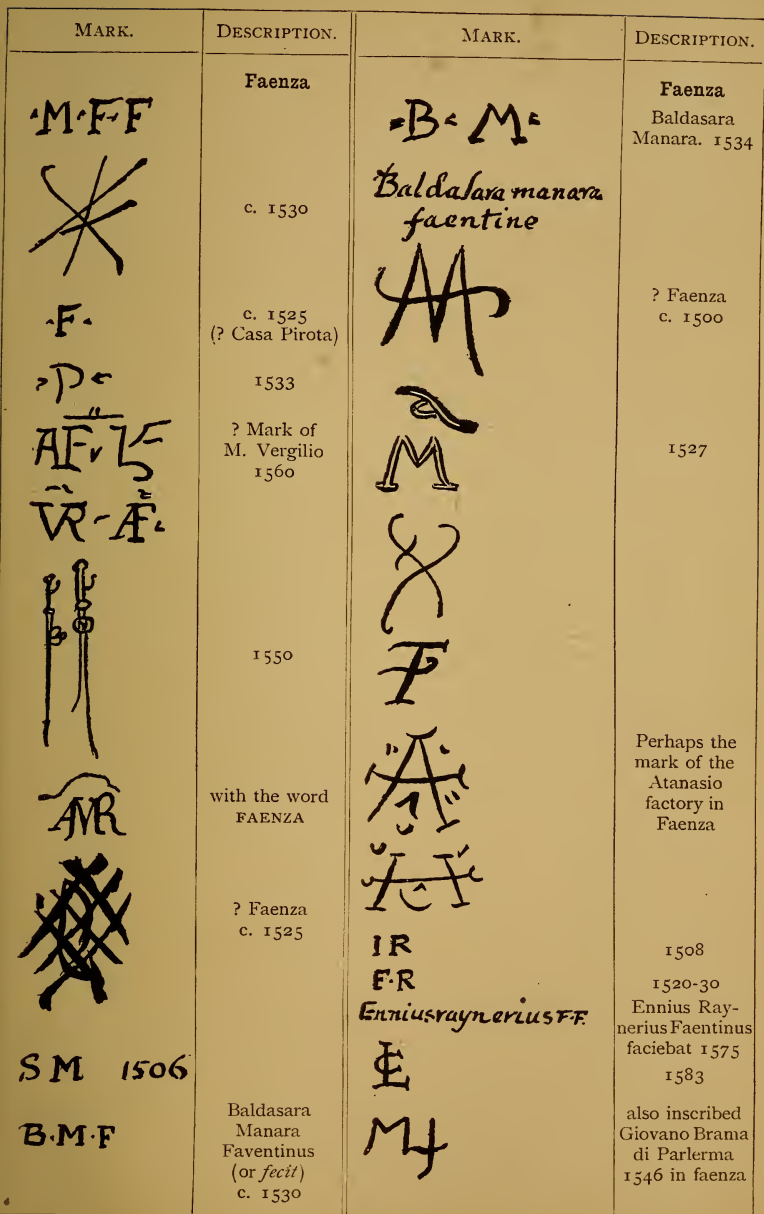 MARK.
DESCRIPTION.
Faenza
·M·F·F
c. 1530
·F·
c. 1525
(? Casa Pirota)
P
1533
? Mark of
M. Vergilio
1560
1550
with the word
FAENZA
? Faenza
c. 1525
S M 1506
B·M·F
Baldasara
Manara
Faventinus
(or fecit)
c. 1530
MARK.
DESCRIPTION.
Faenza
B M
Baldasara
Manara. 1534
Baldasara manara
faentine
? Faenza
c. 1500
M
1527
Perhaps the
mark of the
Atanasio
factory in
Faenza
I R
1508
F·R
1520-30
Enniusraynerius F·F.
Ennius Ray-
nerius Faentinus
faciebat 1575
1583
also inscribed
Giovano Brama
di Parlerma
1546 in faenza